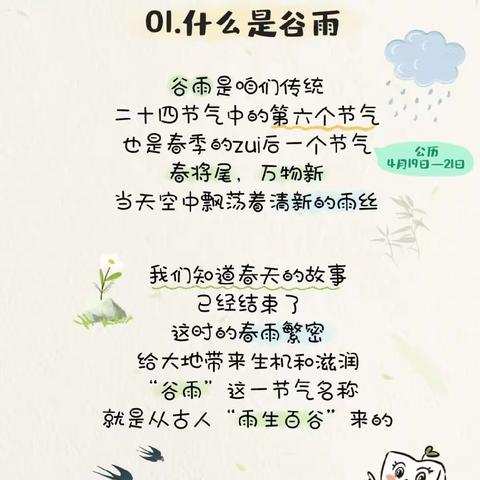 01.什么是谷雨
谷雨是咱们传统
二十四节气中的第六个节气
也是春季的zui后一个节气
公历
4月19日—21日
春将尾，万物新
当天空中飘荡着清新的雨丝
我们知道春天的故事
已经结束了
这时的春雨繁密
给大地带来生机和滋润
“谷雨”这一节气名称
就是从古人“雨生百谷”来的